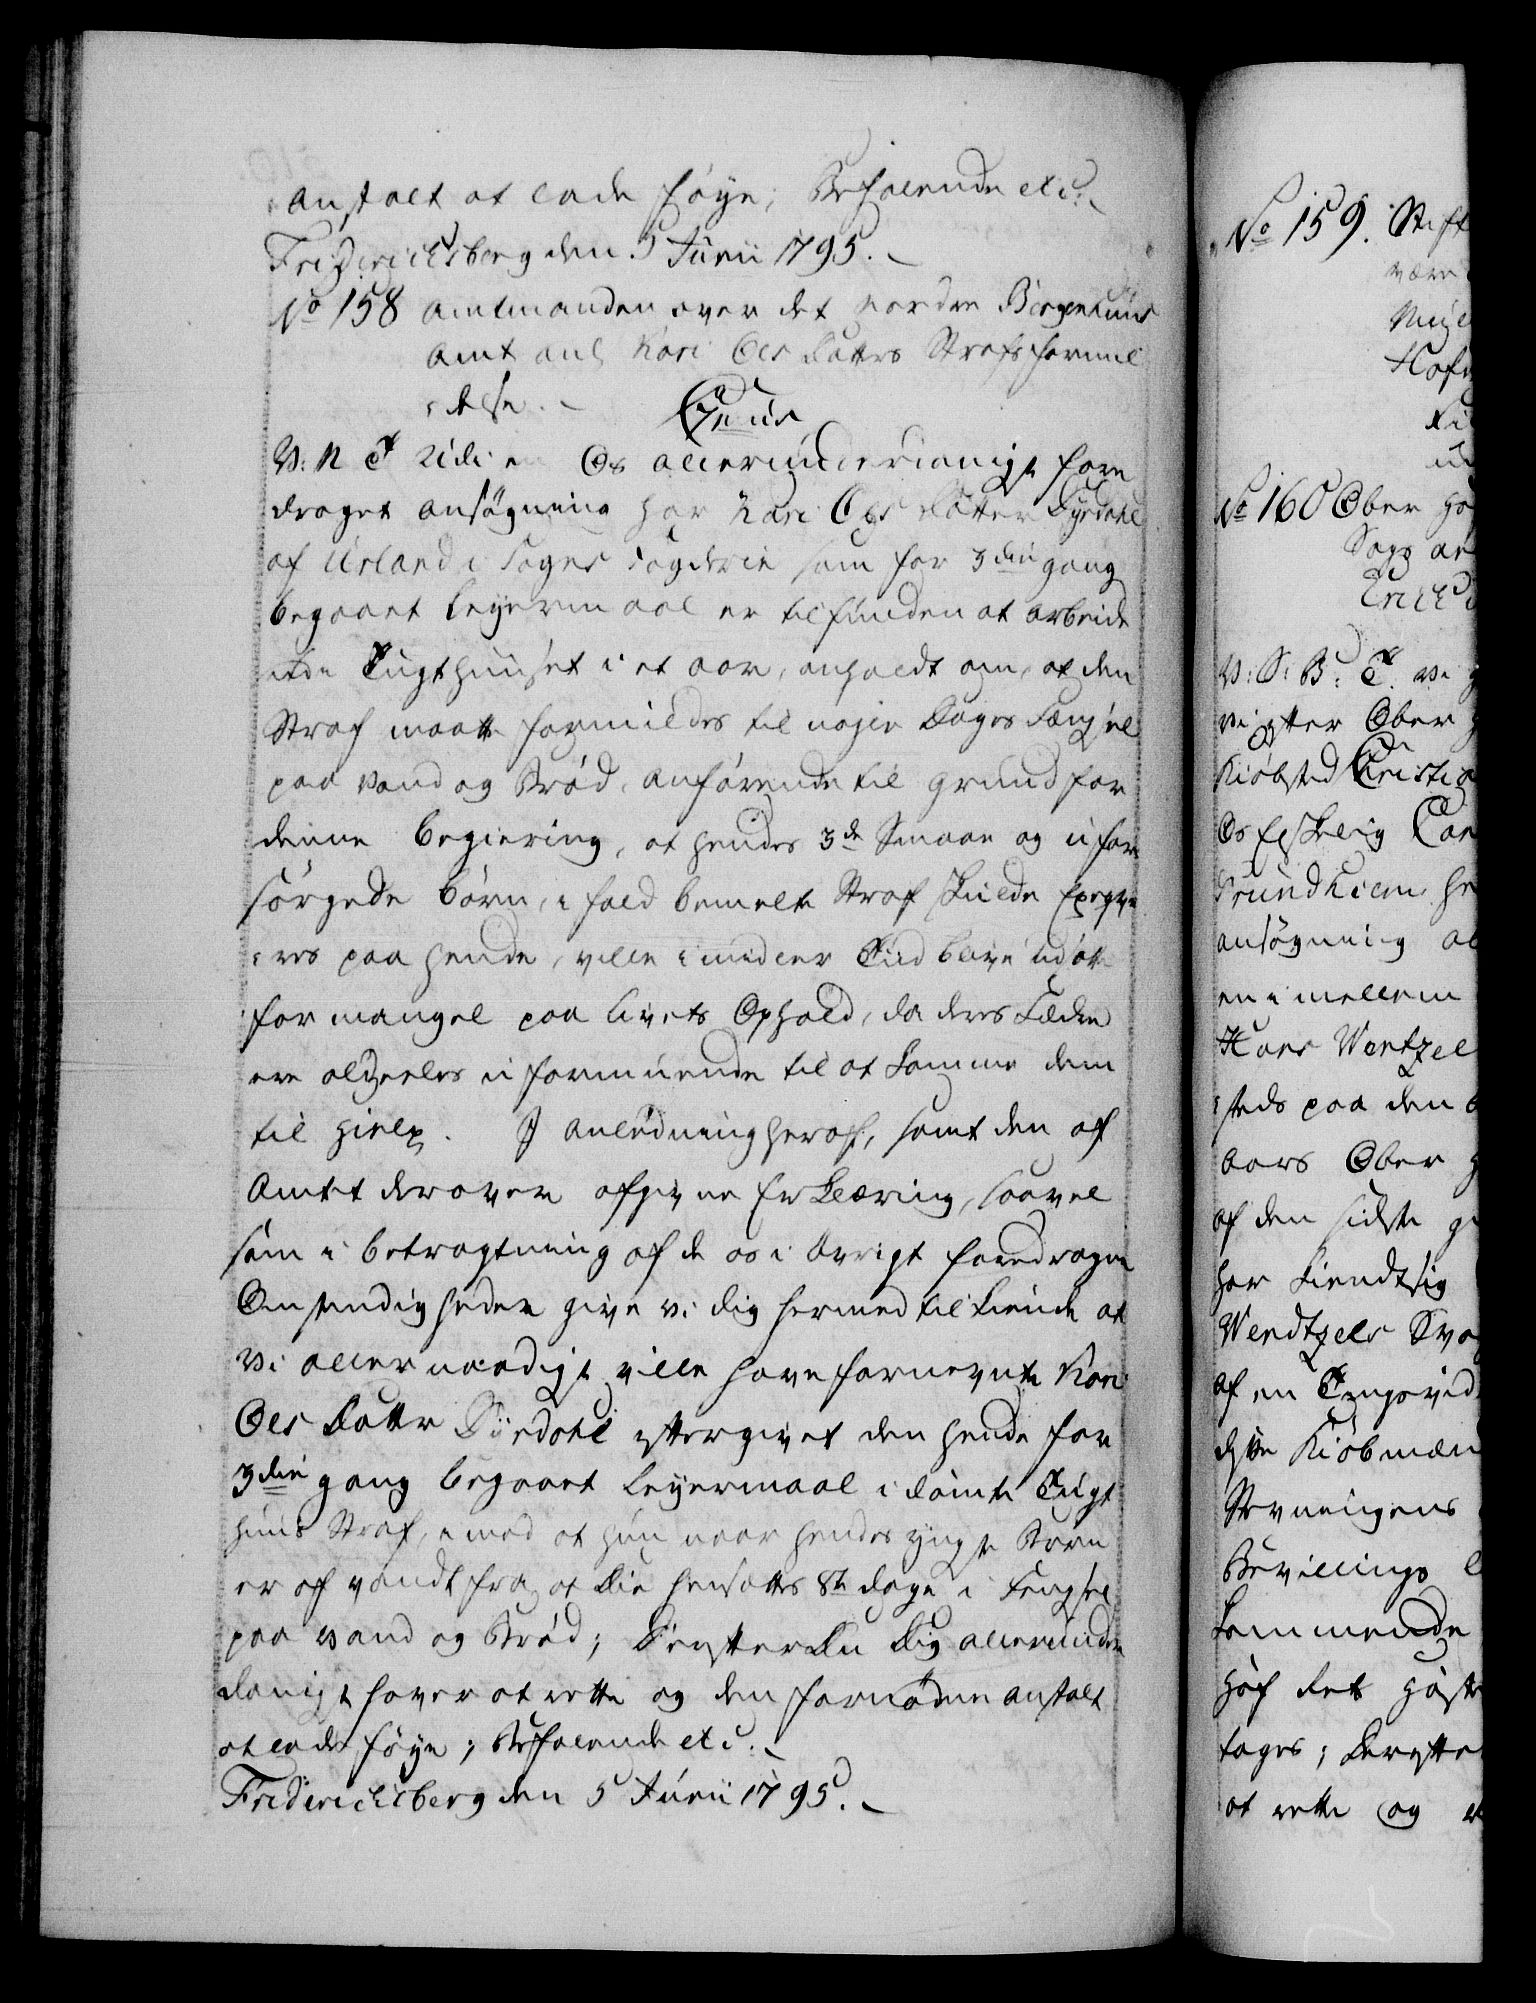 anstalt at lade føye; Befalende etc.
Friderichsberg den 5 Junii 1795.
No 158 Amtmanden over det nordre Bergenhuus
Amt anl Kari Ols Datters Strafs formil
delse.
C 7 us
V: N T Udi en Os allerunderdanigst fore
draget ansøgning har Kari Ols Datter Dyrdahl
af Urland i Sogns Fogderie som for 3die gang
begaaet Leyermaal er tilfunden at arbeide
Tugthuuset i et aar, anholdt om, at den
Straf maatte formildes til nogle Dages Fængsel
paa vand og Brød, anførende til grund for
denne begiering, at hendes 3de Smaae og ufor
sørgede børn, i fald bemelte Straf skulde Exeqve
res paa hende, ville imidler Tiid blive udsatte
for mangel paa livets Ophold, da deres Fædre
ere aldeeles uformuende til at komme dem
til hielp. I anledning heraf, samt den af
Amtet derover afgivne Erklæring, saavel
som i betragtning af de os i øvrigt foredragne
Omstendigheder give vi dig hermed tilkiende at
vi allernaadigst ville have fornevnte Kari
Ols Datter Dyrdahl eftergivet den hende for
3die gang begaaet Leyermaal idømte Tugt
huus Straf, imod at hun naar hendes yngste Barn
er afvandt fra at Die hensættes 8te dage i Fengsel
paa vand og Brød; Derefter Du Dig allerunder
danigst haver at rette og den fornødne anstalt
at lade føye; Befalende etc.
Friderichsberg den 5 Junii 1795.
No 159. Stift
være
Hof
No 160 Ober Ho
Sags an
Erich
V: S: B: T. vi g
Ober
Kiøbsted Christia
Os
Trundhiem he
ansøgning al
en imellem
Hans Wentzel
steds paa den
Aars Ober
af den sidste
har kiendt sig
Wendtzels Sva
af en
Kiøbmæn
Stevningens
Bevillings
kommende
Høieste
tages; Derefter
at rette og